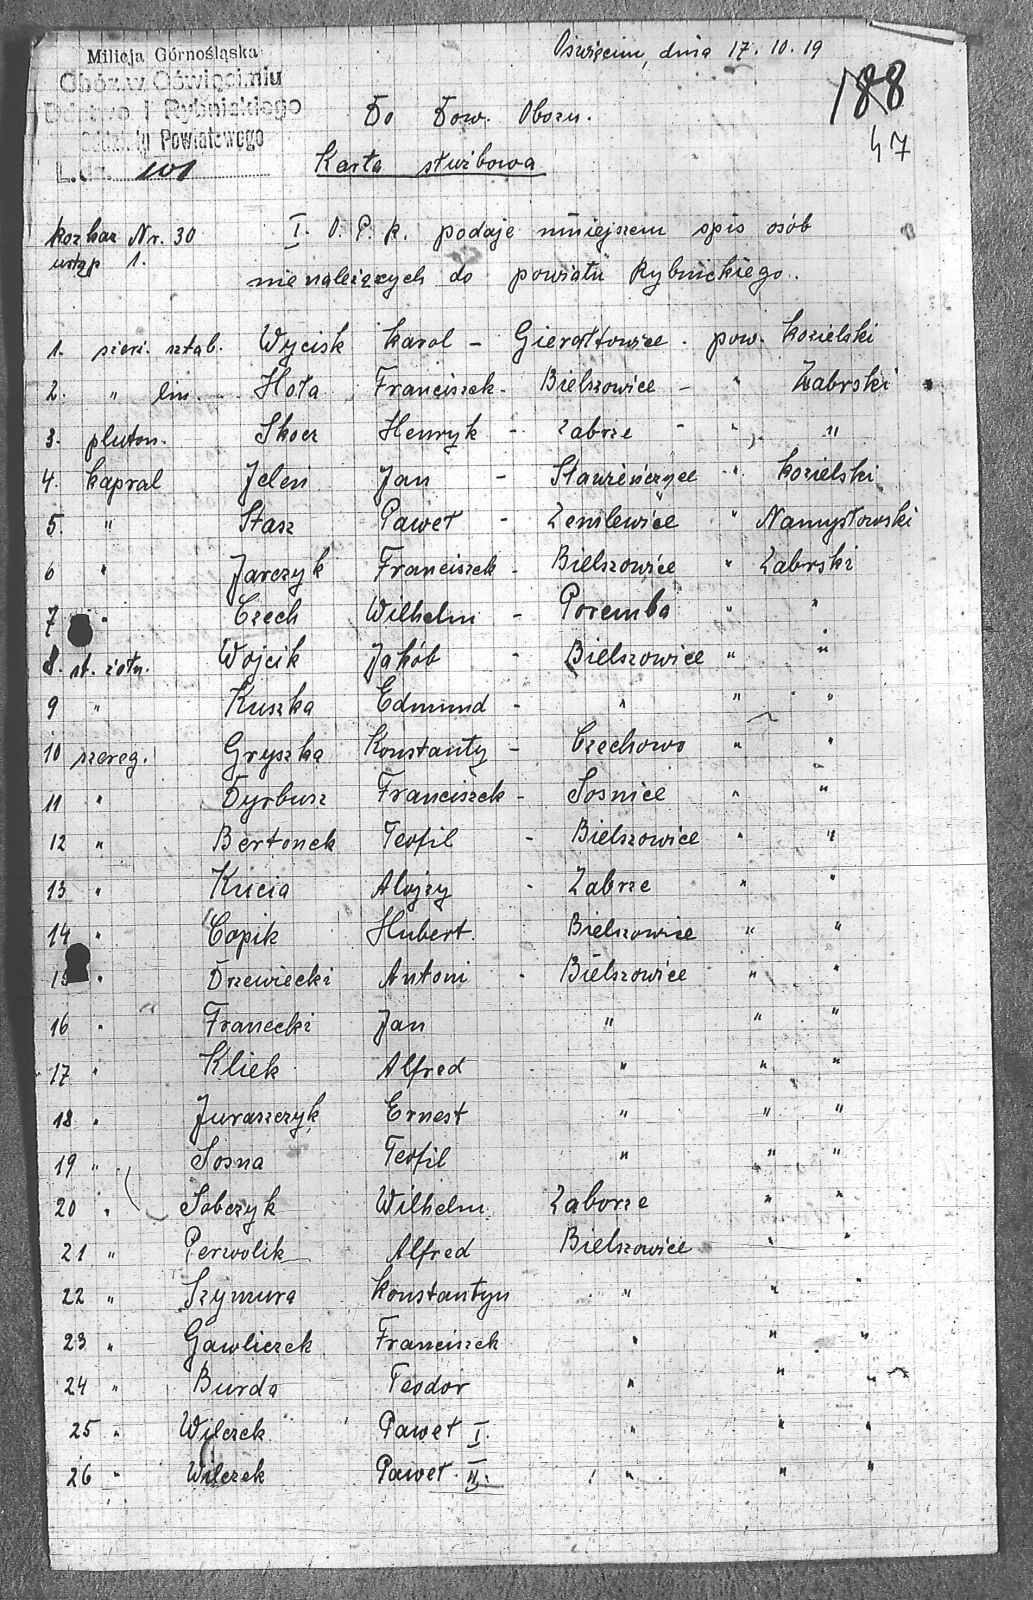 Milicja Górnośląska
Obóz w Oświęcimiu
Dictwo I Rybnickiego
oddziału Powiatowego
L. dz. 101
Oświęcim, dnia 17. 10. 19
188
47
Do Dow. Obozu.
Karta służbowa
Rozkaz Nr. 30
ustęp 1.
I. O. P. R. podaje niniejszem spis osób
nienależących do powiatu Rybnickiego.
1. sierż. sztab. Wycisk Karol - Gierałtowice - pow. Kozielski
2. " lin. Hota Franciszek - Bielszowice - " Zabrski
3. pluton. Skocz Henryk - Zabrze - " "
4. kapral Jeleń Jan - Sławieńczyce - " Kozielski
5. " Stasz Paweł - " Namysłowski
6 " Jarczyk Franciszek - Bielszowice " Zabrski
7 " Czech Wilhelm - Poremba " "
8. st. żołn. Wojcik Jakób - Bielszowice " "
9 " Kuszka Edmund - " " "
10 szereg. Gryszka Konstanty - Czechowo " "
11 " Dyrbusz Franciszek - Sosnice " "
12 " Bertonek Teofil - Bielszowice " "
13 " Kucia Alojzy - Zabrze " "
14 " Copik Hubert Bielszowice " "
15 " Drzewiecki Antoni - Bielszowice " "
16 " Franecki Jan " " "
17 " Kliek Alfred " " "
18 " Juraszczyk Ernest " " "
19 " Sosna Teofil " " "
20 " Sobczyk Wilhelm Zaborze " "
21 " Perwolik Alfred Bielszowice " "
22 " Szymura Konstantyn " " "
23 " Gawliczek Franciszek " " "
24 " Burda Teodor " " "
25 " Wilczek Paweł I. " " "
26 " Wilczek Paweł II. " " "